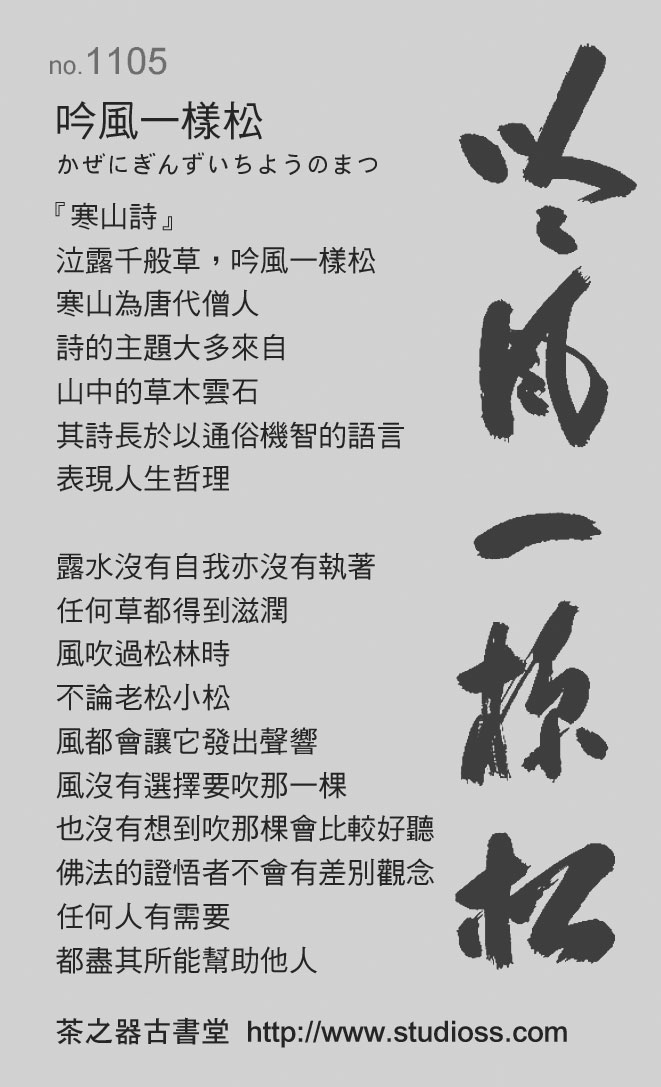 no.1105
吟風一樣松
かぜにぎんずいちようのまつ
『寒山詩』
泣露千般草，吟風一樣松
寒山為唐代僧人
詩的主題大多來自
山中的草木雲石
其詩長於以通俗機智的語言
表現人生哲理
露水沒有自我亦沒有執著
任何草都得到滋潤
風吹過松林時
不論老松小松
風都會讓它發出聲響
風沒有選擇要吹那一棵
也沒有想到吹那棵會比較好聽
佛法的證悟者不會有差別觀念
任何人有需要
都盡其所能幫助他人
茶之器古書堂 http://www.studioss.com
吟風一樣松